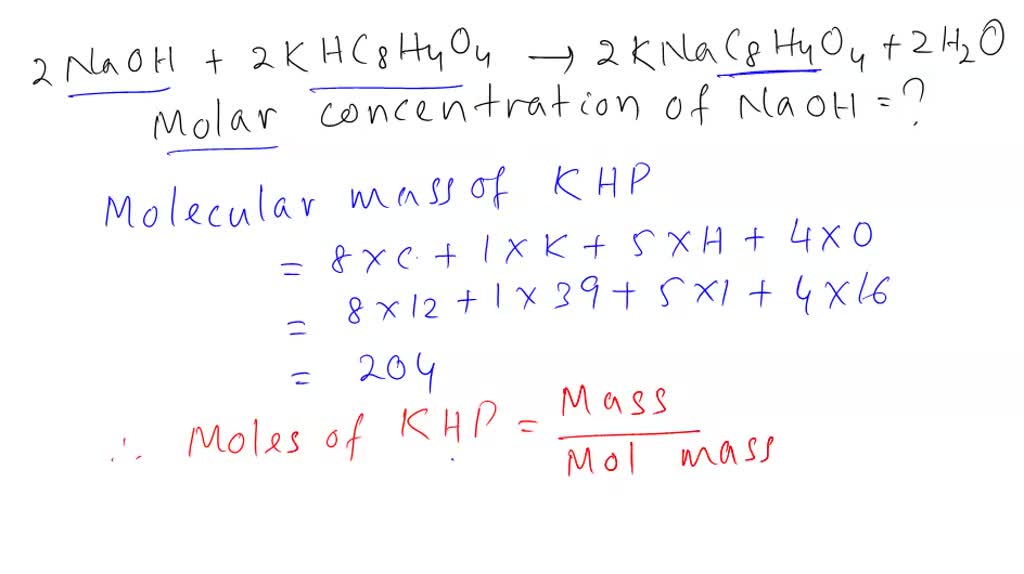 2NaOH + 2KHC8H4O4 → 2KNaC8H4O4 + 2H2O
Molar concentration of NaOH = ?
Molecular mass of KHP
= 8 × C + 1 × K + 5 × H + 4 × O
= 8 × 12 + 1 × 39 + 5 × 1 + 4 × 16
= 204
∴ Moles of KHP = Mass
Mol mass